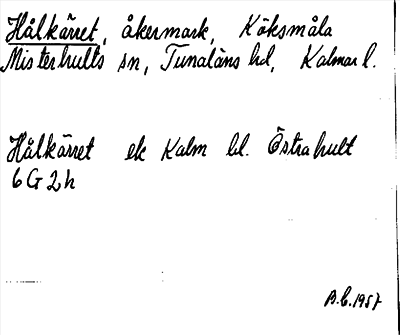 Hålkärret, åkermark, Köksmåla
Misterhults sn, Tunaläns hd, Kalmar l.
Hålkärret ek Kalm bl. Östrahult
6G2h
B.C. 1957